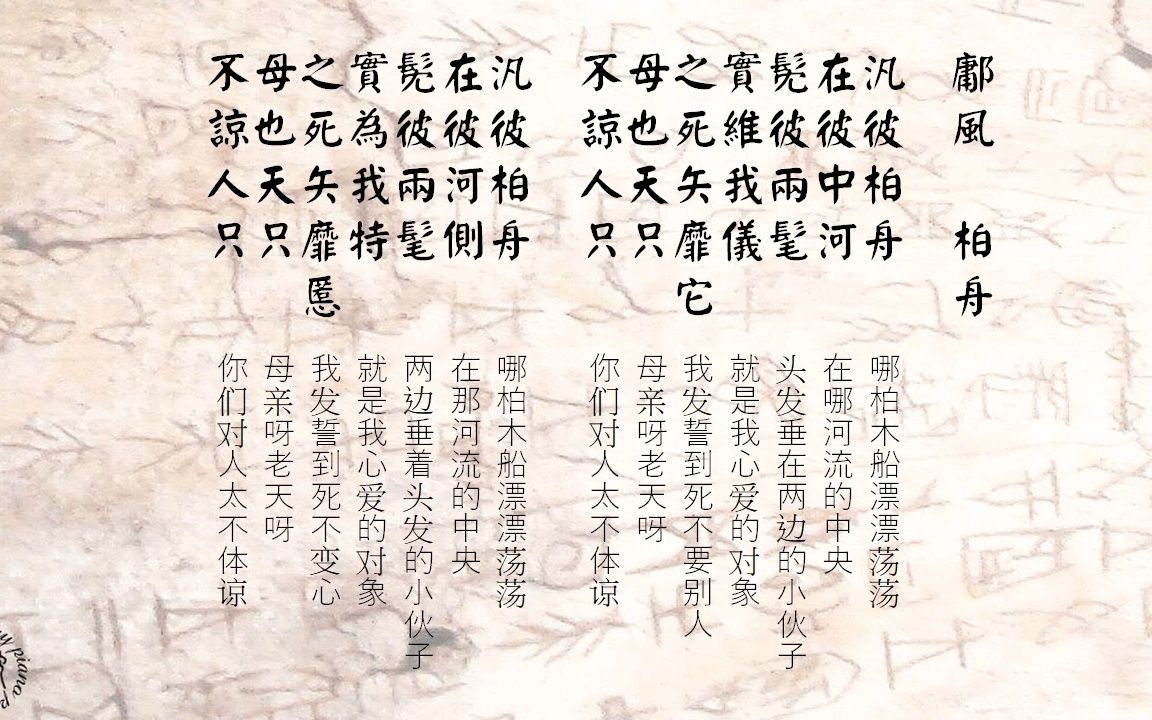 鄘風 柏舟
汎彼柏舟
在彼中河
髧彼兩髦
實維我儀
之死矢靡它
母也天只
不諒人只
汎彼柏舟
在彼河側
髧彼兩髦
實為我特
之死矢靡慝
母也天只
不諒人只
哪柏木船漂漂荡荡
在哪河流的中央
头发垂在两边的小伙子
就是我心爱的对象
我发誓到死不要别人
母亲呀老天呀
你们对人太不体谅
哪柏木船漂漂荡荡
在那河流的中央
两边垂着头发的小伙子
就是我心爱的对象
我发誓到死不变心
母亲呀老天呀
你们对人太不体谅
piano